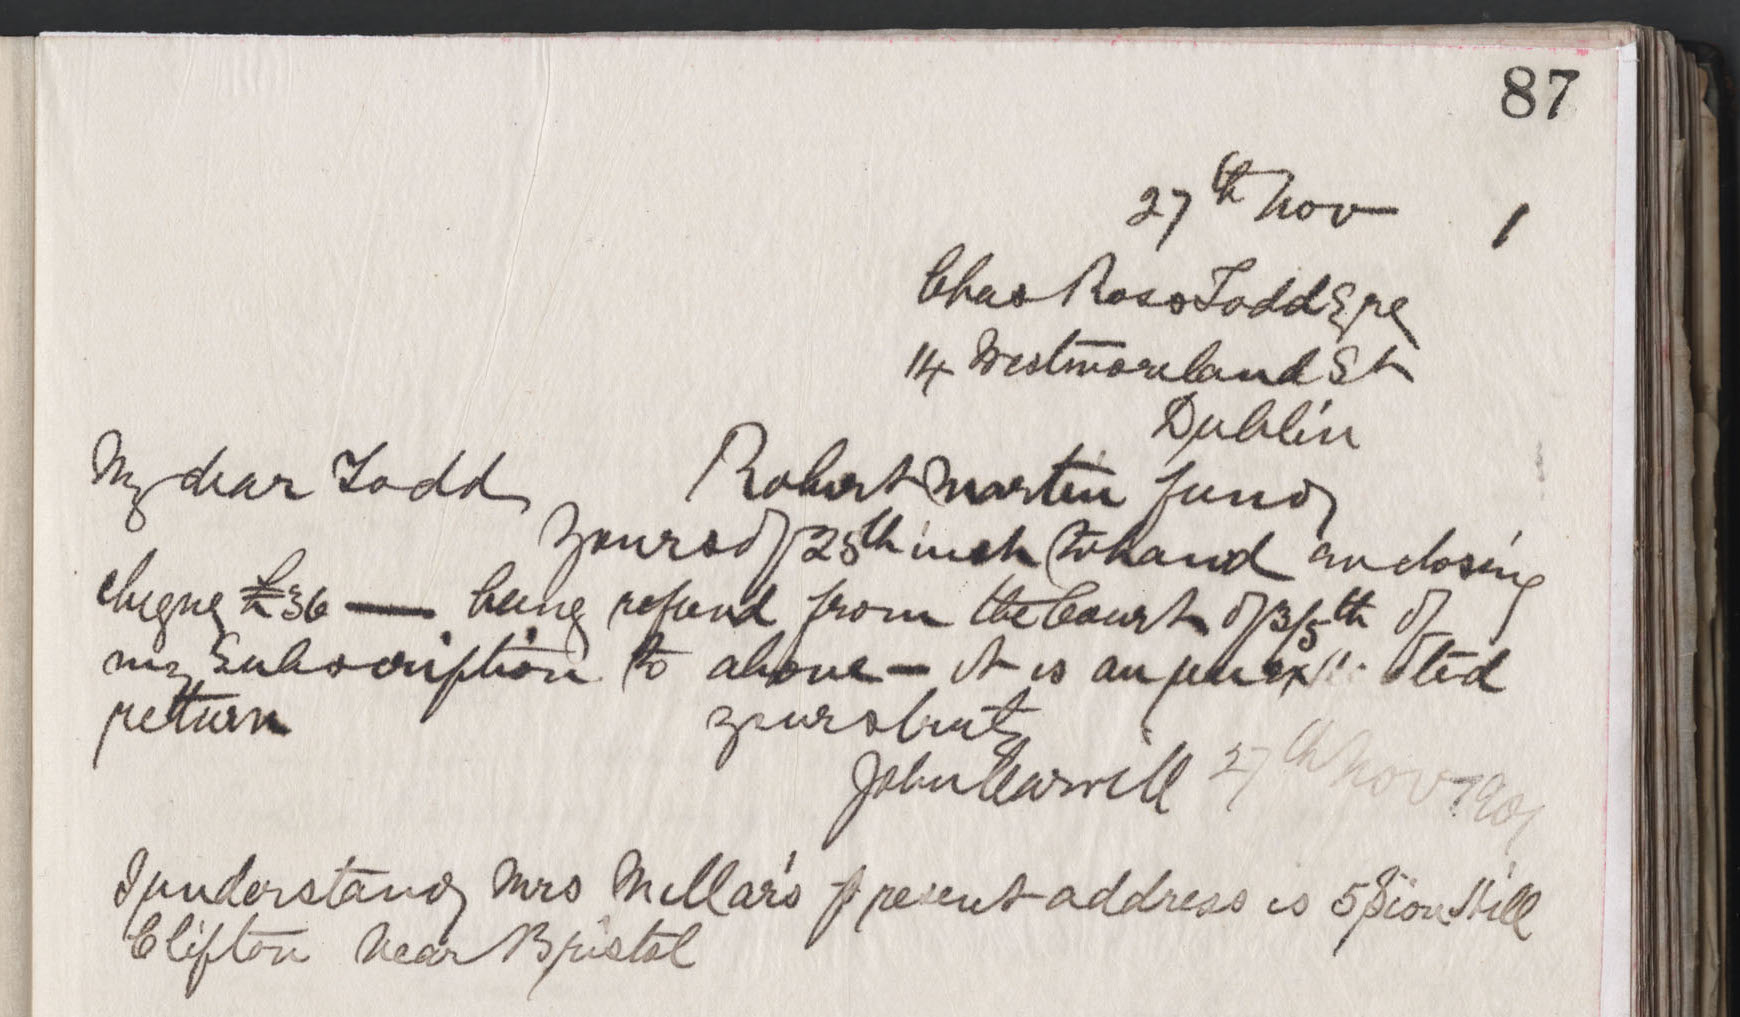 87
27th Nov 1
Chas Ross Todd Esqre
14 Westmoreland St
Dublin
My dear Todd Robert Martin fund
Yours of 25th inst to hand enclosing
cheque £36 — being refund from the Court of 3/5th of
my Subscription to above — it is an unexpected
return
yours truly
John Carvill 27th Nov 1901
I understand Mrs Millar's present address is 5 Sion Hill
Clifton near Bristol